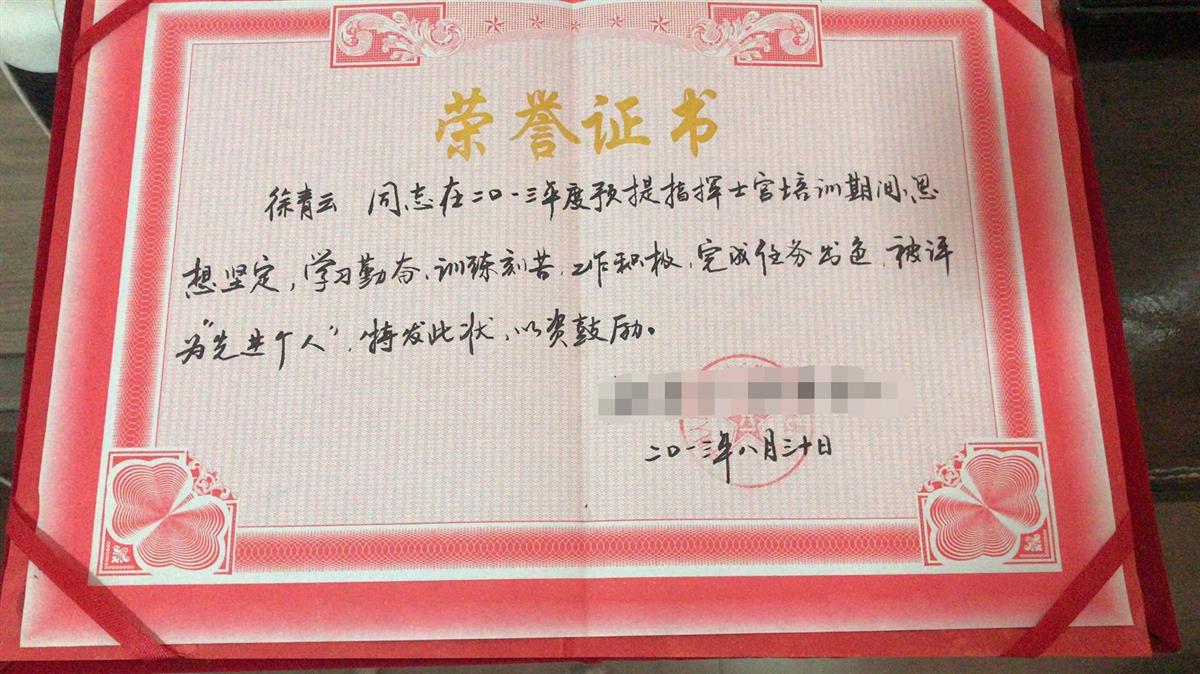 荣誉证书
徐青云 同志在二〇一三年度预提指挥士官培训期间,思
想坚定,学习勤奋,训练刻苦,工作积极,完成任务出色,被评
为"先进个人",特发此状,以资鼓励。
二〇一三年八月三十日